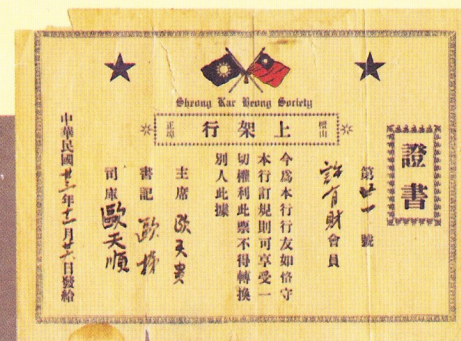 Sheong Kar Heong Society
檀山
行架上
正埠
證書
第廿一號
許有財會員
今為本行行友如恪守
本行訂規則可享受一
切權利此票不得轉換
別人此據
主席 歐天貴
書記 歐梯
司庫 歐天順
中華民國廿三年十二月廿六日發給